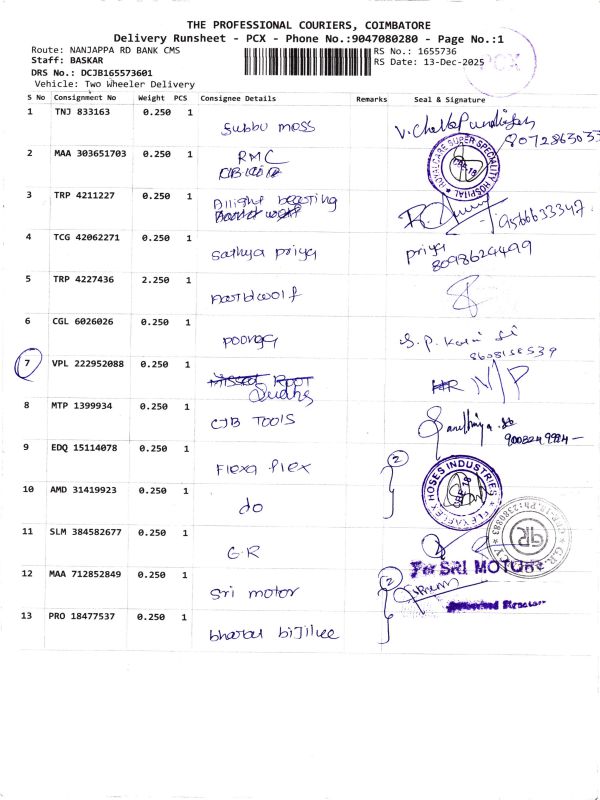 THE PROFESSIONAL COURIERS, COIMBATORE
Delivery Runsheet - PCX - Phone No.:9047080280 - Page No.:1
Route: NANJAPPA RD BANK CMS
RS No.: 1655736
Staff: BASKAR
RS Date: 13-Dec-2025
PCX
DRS No.: DCJB165573601
Vehicle: Two Wheeler Delivery
S No Consignment No Weight PCS Consignee Details Remarks Seal & Signature
1 TNJ 833163 0.250 1 Subbu moss
2 MAA 303651703 0.250 1 RMC
ROYALCARE SUPER SPECIALITY HOSPITAL
3 TRP 4211227 0.250 1 9566633347
4 TCG 42062271 0.250 1 Sathya priya priya
8098624499
5 TRP 4227436 2.250 1
6 CGL 6026026 0.250 1
7 VPL 222952088 0.250 1 N/P
8 MTP 1399934 0.250 1 CJB TOOLS
9 EDQ 15114078 0.250 1 Flexa flex 2
FLEXAFLEX HOSES INDUSTRIES
10 AMD 31419923 0.250 1 do
11 SLM 384582677 0.250 1 G.R
12 MAA 712852849 0.250 1 Sri motor 2
For SRI MOTORS
13 PRO 18477537 0.250 1 bharat bijilee